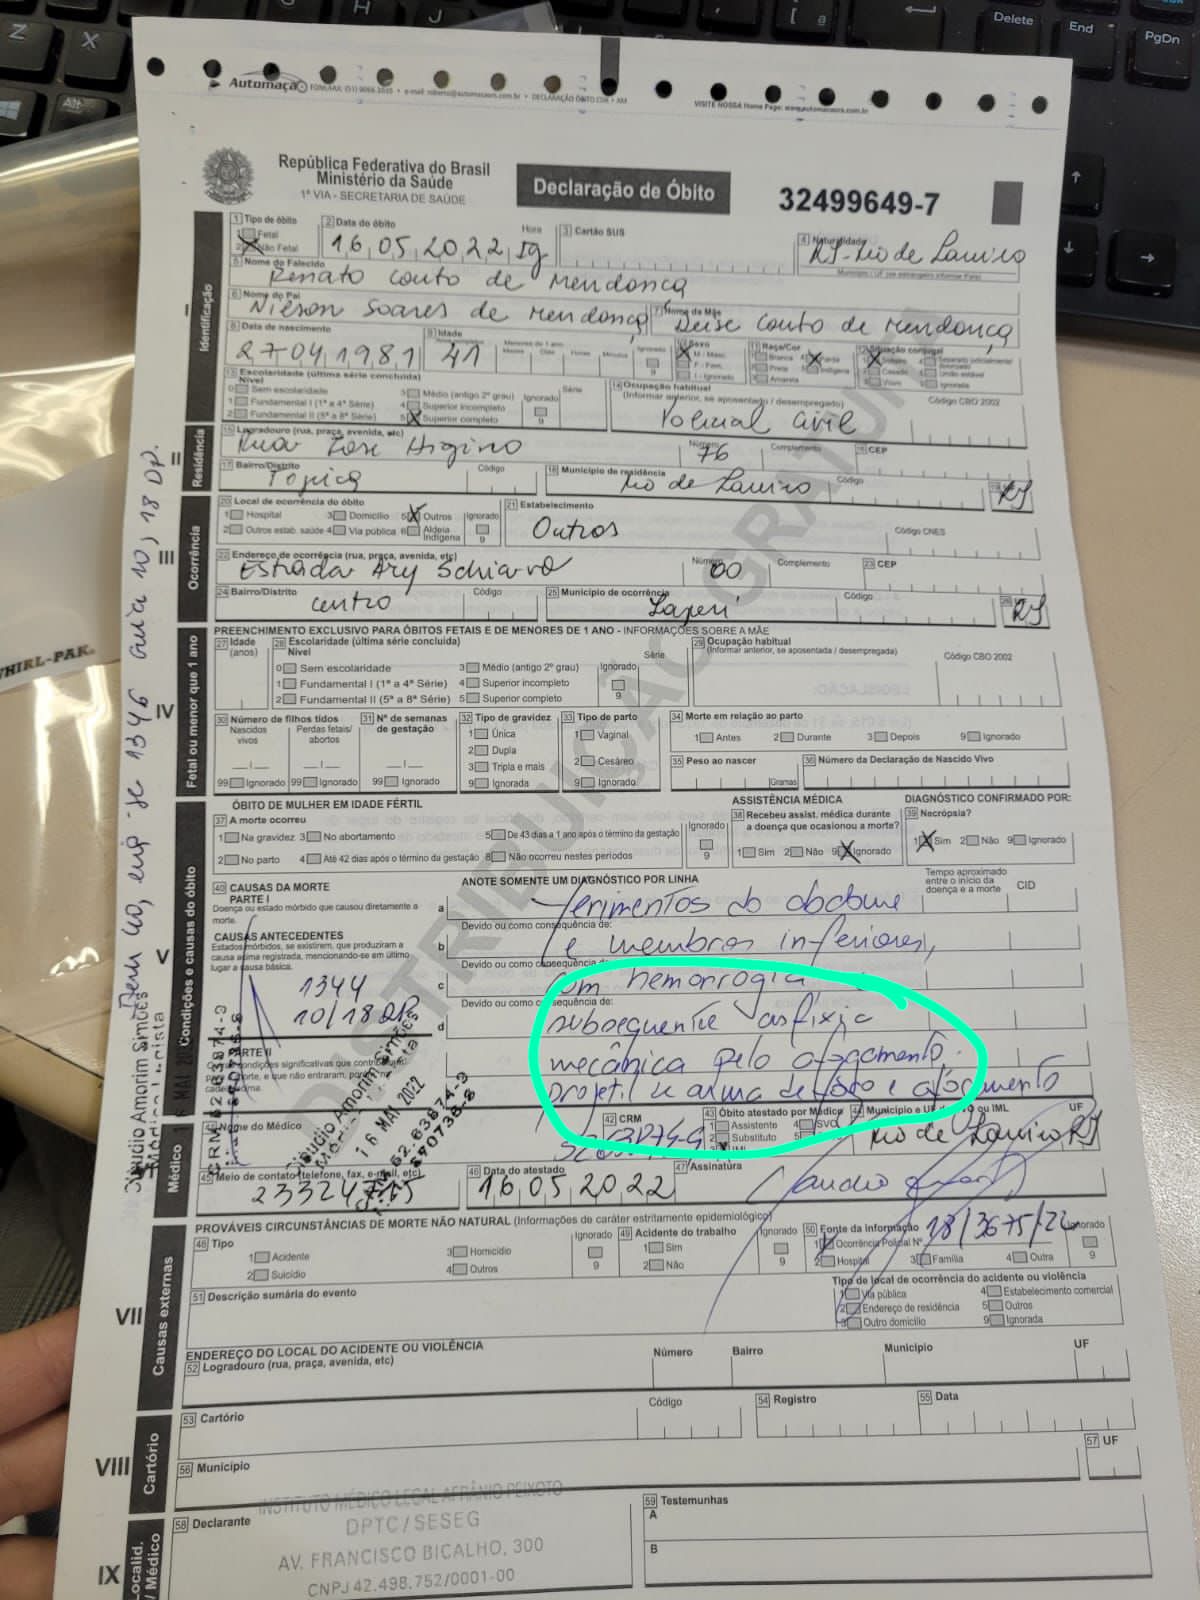 Automação
FONE/FAX: (51) 9066.1010 • e-mail: roberto@automacaors.com.br • DECLARAÇÃO ÓBITO COR • NM
VISITE NOSSA Home Page: www.automacaors.com.br
República Federativa do Brasil
Ministério da Saúde
1ª VIA - SECRETARIA DE SAÚDE
Declaração de Óbito
32499649-7
I Identificação
1 Tipo de óbito
1 Fetal
2 Não Fetal
2 Data do óbito
Hora
16.05.2022 Ig
3 Cartão SUS
4 Naturalidade
RJ-Rio de Janeiro
Município / UF (se estrangeiro informar País)
5 Nome do Falecido
Renato Couto de Mendonça
6 Nome do Pai
Nilson Soares de Mendonça
7 Nome da Mãe
Deise Couto de Mendonça
8 Data de nascimento
27041981
9 Idade
41
Menores de 1 ano
Meses Dias Horas Minutos Ignorado
9
10 Sexo
M - Masc.
F - Fem.
I - Ignorado
11 Raça/Cor
1 Branca 4 Parda
2 Preta 5 Indígena
3 Amarela
12 Situação conjugal
1 Solteiro 4 Separado judicialmente/
2 Casado 5 União estável
3 Viúvo 9 Ignorada
13 Escolaridade (última série concluída)
Nível
0 Sem escolaridade
1 Fundamental I (1ª a 4ª Série)
2 Fundamental II (5ª a 8ª Série)
3 Médio (antigo 2º grau)
4 Superior incompleto
5 Superior completo
Série
Ignorado
9
14 Ocupação habitual
(Informar anterior, se aposentado / desempregado)
Código CBO 2002
Policial Civil
II Residência
15 Logradouro (rua, praça, avenida, etc)
Rua Jose Higino
Número
76
Complemento
16 CEP
17 Bairro/Distrito
Tojica
Código
18 Município de residência
Rio de Janeiro
Código
RJ
III Ocorrência
20 Local de ocorrência do óbito
1 Hospital 3 Domicílio 5 Outros Ignorado
2 Outros estab. saúde 4 Via pública 6 Aldeia Indígena 9
21 Estabelecimento
Outros
Código CNES
22 Endereço de ocorrência (rua, praça, avenida, etc)
Estrada Ary Schiavo
Número
00
Complemento
23 CEP
24 Bairro/Distrito
centro
25 Município de ocorrência
Japeri
Código
RJ
IV Fetal ou menor que 1 ano
PREENCHIMENTO EXCLUSIVO PARA ÓBITOS FETAIS E DE MENORES DE 1 ANO - INFORMAÇÕES SOBRE A MÃE
27 Idade
(anos)
28 Escolaridade (última série concluída)
Nível
0 Sem escolaridade
1 Fundamental I (1ª a 4ª Série)
2 Fundamental II (5ª a 8ª Série)
3 Médio (antigo 2º grau)
4 Superior incompleto
5 Superior completo
Série
Ignorado
9
29 Ocupação habitual
(Informar anterior, se aposentada / desempregada)
Código CBO 2002
30 Número de filhos tidos
Nascidos vivos
Perdas fetais/ abortos
99 Ignorado 99 Ignorado
31 Nº de semanas de gestação
99 Ignorado
32 Tipo de gravidez
1 Única
2 Dupla
3 Tripla e mais
9 Ignorada
33 Tipo de parto
1 Vaginal
2 Cesáreo
9 Ignorado
34 Morte em relação ao parto
1 Antes 2 Durante 3 Depois 9 Ignorado
35 Peso ao nascer
Gramas
36 Número da Declaração de Nascido Vivo
V Condições e causas do óbito
ÓBITO DE MULHER EM IDADE FÉRTIL
37 A morte ocorreu
1 Na gravidez 3 No abortamento 5 De 43 dias a 1 ano após o término da gestação
2 No parto 4 Até 42 dias após o término da gestação 8 Não ocorreu nestes períodos
Ignorado
9
ASSISTÊNCIA MÉDICA
38 Recebeu assist. médica durante
a doença que ocasionou a morte?
1 Sim 2 Não 9 Ignorado
DIAGNÓSTICO CONFIRMADO POR:
39 Necrópsia?
1 Sim 2 Não 9 Ignorado
40 CAUSAS DA MORTE
PARTE I
Doença ou estado mórbido que causou diretamente a
morte.
CAUSAS ANTECEDENTES
Estados mórbidos, se existirem, que produziram a
causa acima registrada, mencionando-se em último
lugar a causa básica.
1344
10/18DP
PARTE II
ANOTE SOMENTE UM DIAGNÓSTICO POR LINHA
Tempo aproximado
entre o início da
doença e a morte
CID
a ferimentos do abdome
Devido ou como consequência de:
b e membros inferiores,
Devido ou como consequência de:
c com hemorragia
Devido ou como consequência de:
d subsequente asfixia
mecânica pelo afogamento.
projetil de arma de fogo e afogamento
VI Médico
41 Nome do Médico
42 CRM
43 Óbito atestado por Médico
1 Assistente 4 SVO
2 Substituto 5
3 IML
44 Município e UF do SVO ou IML
UF
Rio de Janeiro RJ
45 Meio de contato (telefone, fax, e-mail, etc)
46 Data do atestado
16.05.2022
47 Assinatura
Claudio
Claudio Amorim Simões
Médico Legista
16 MAI. 2022
CRM 52.63874-9
890738-8
Claudio Amorim Simões
Médico Legista
16 MAI 2022
CRM 52.63874-9
890738-8
1346 guia 10, 18 DP.
VII Causas externas
PROVÁVEIS CIRCUNSTÂNCIAS DE MORTE NÃO NATURAL (Informações de caráter estritamente epidemiológico)
48 Tipo
1 Acidente 3 Homicídio
2 Suicídio 4 Outros
Ignorado
9
49 Acidente do trabalho
1 Sim
2 Não
Ignorado
9
50 Fonte da informação
1 Ocorrência Policial Nº 18/3675/22
2 Hospital 3 Família 4 Outra
Ignorado
9
51 Descrição sumária do evento
Tipo de local de ocorrência do acidente ou violência
1 Via pública 4 Estabelecimento comercial
2 Endereço de residência 5 Outros
3 Outro domicílio 9 Ignorada
ENDEREÇO DO LOCAL DO ACIDENTE OU VIOLÊNCIA
52 Logradouro (rua, praça, avenida, etc)
Número Bairro Município UF
VIII Cartório
53 Cartório
Código
54 Registro
55 Data
56 Município
57 UF
IX Localid. / Médico
58 Declarante
INSTITUTO MÉDICO LEGAL AFRÂNIO PEIXOTO
DPTC/SESEG
AV. FRANCISCO BICALHO, 300
CNPJ 42.498.752/0001-00
59 Testemunhas
A
B
DISTRIBUIÇÃO GRATUITA
WHIRL-PAK.
Z
X
Alt
H
J
Delete
End
PgDn